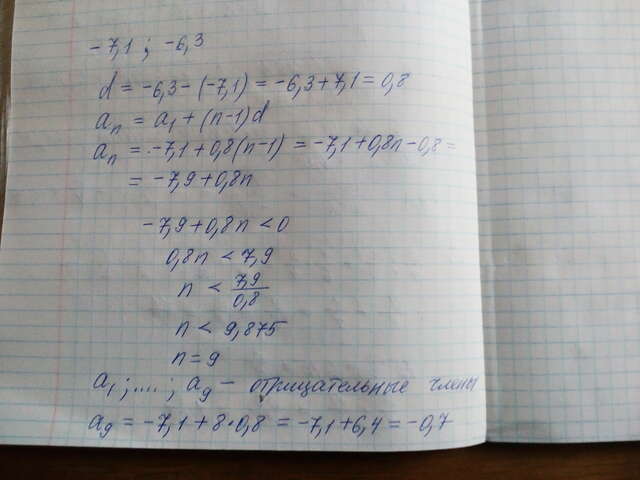 -7,1 ; -6,3
d = -6,3-(-7,1) = -6,3+7,1 = 0,8
aₙ = a₁ + (n-1)d
aₙ = -7,1+0,8(n-1) = -7,1+0,8n-0,8 =
= -7,9+0,8n
-7,9+0,8n < 0
0,8n < 7,9
n < 7,9/0,8
n < 9,875
n = 9
a₁ ; .... ; a₉ - отрицательные члены
a₉ = -7,1+8·0,8 = -7,1+6,4 = -0,7